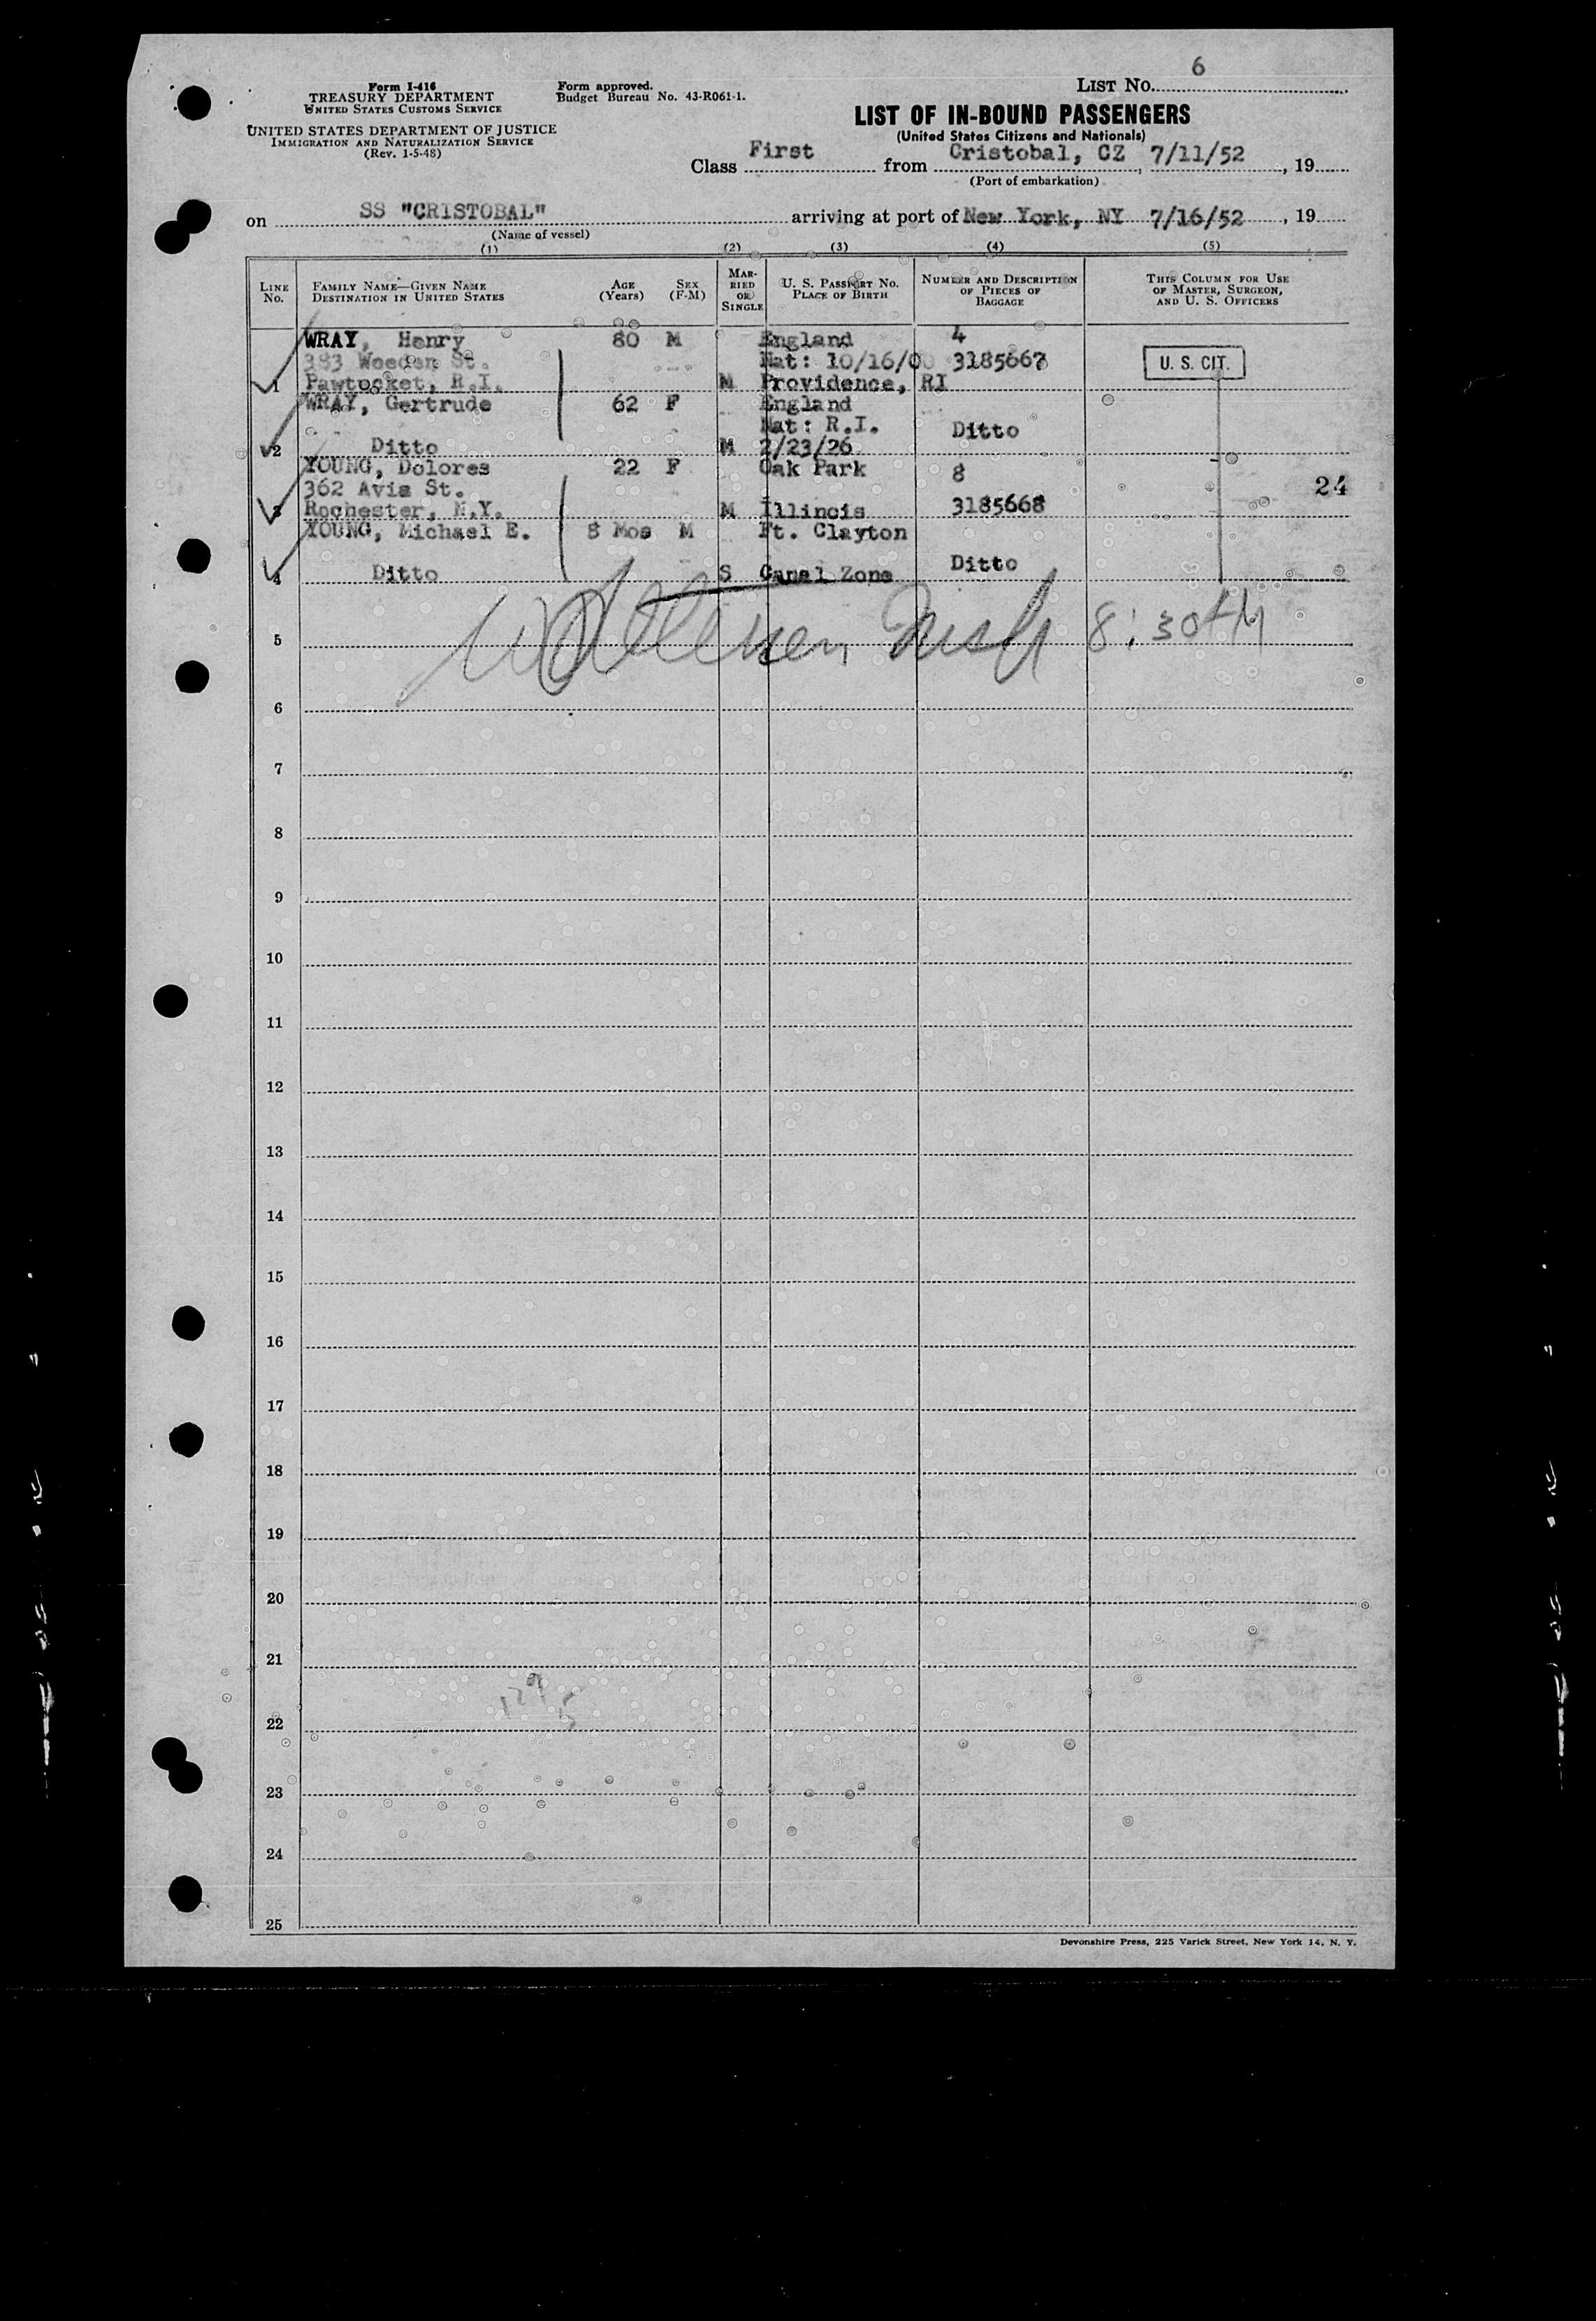 6
Form I-416
TREASURY DEPARTMENT
UNITED STATES CUSTOMS SERVICE
UNITED STATES DEPARTMENT OF JUSTICE
IMMIGRATION AND NATURALIZATION SERVICE
(Rev. 1-5-48)
Form approved.
Budget Bureau No. 43-R061-1.
LIST NO.
LIST OF IN-BOUND PASSENGERS
(United States Citizens and Nationals)
Class First from Cristobal, CZ 7/11/52, 19
(Port of embarkation)
on SS "CRISTOBAL" arriving at port of New York, NY 7/16/52, 19
(Name of vessel)
(1) (2) (3) (4) (5)
LINE No. FAMILY NAME—GIVEN NAME DESTINATION IN UNITED STATES AGE (Years) SEX (F-M) MARRIED OR SINGLE U. S. PASSPORT NO. PLACE OF BIRTH NUMBER AND DESCRIPTION OF PIECES OF BAGGAGE THIS COLUMN FOR USE OF MASTER, SURGEON, AND U. S. OFFICERS
WRAY, Henry 80 M England 4
383 Weeden St. Nat: 10/16/00 3185667 U. S. CIT.
1 Pawtocket, R.I. M Providence, RI
WRAY, Gertrude 62 F England
Nat: R.I. Ditto
2 Ditto M 2/23/26
YOUNG, Dolores 22 F Oak Park 8
362 Avis St. 24
3 Rochester, N.Y. M Illinois 3185668
YOUNG, Michael E. 8 Mos M Ft. Clayton
4 Ditto S Canal Zone Ditto
5 8:30 AM
6
7
8
9
10
11
12
13
14
15
16
17
18
19
20
21
22
23
24
25
Devonshire Press, 225 Varick Street, New York 14, N. Y.